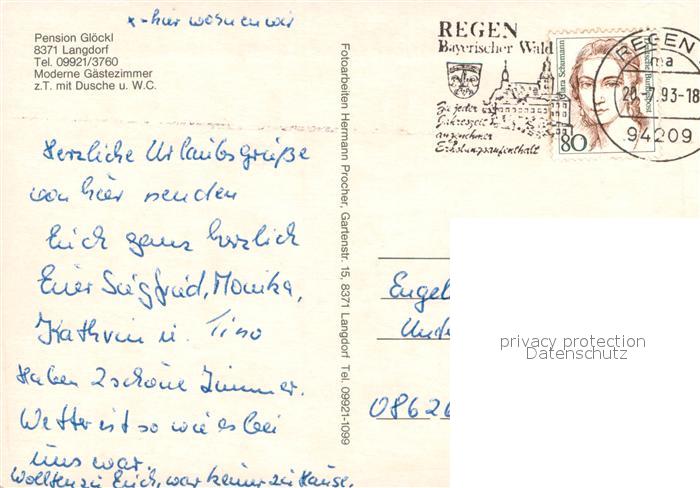 x-hier wohnen wir
Pension Glöckl
8371 Langdorf
Tel. 09921/3760
Moderne Gästezimmer
z.T. mit Dusche u. W.C.
Herzliche Urlaubsgrüße
von hier senden
Euch ganz herzlich
Euer Siegfried, Monika,
Kathrin u. Tino
Haben 2 schöne Zimmer.
Wetter ist so wie es bei
uns war.
Wollten zu Euch, war keiner zu Hause.
Fotoarbeiten Hermann Procher, Gartenstr. 15, 8371 Langdorf Tel. 09921-1099
REGEN
Bayerischer Wald
Zu jeder
Jahreszeit
angenehmer
Erholungsaufenthalt
Clara Schumann
Deutsche Bundespost
80
REGEN 1
ma
20.-7.93-18
94209
Engel
Unde
08626
privacy protection
Datenschutz